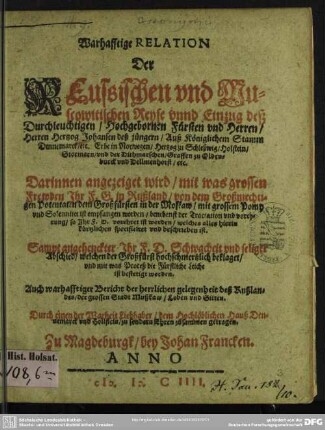 Warhafftige RELATION
Der
REussischen vnd Mus-
cowitischen Reyse vnnd Einzug deß
Durchleuchtigen / Hochgebornen Fürsten vnd Herren /
Herren Hertzog Johansen deß jüngern / Auß Königlichem Stamm
Dennemarckischen / Erbe in Norwegen / Hertzog zu Schleswig / Holstein /
Stormarn / vnd der Dithmarschen / Graffen zu Olden-
burck vnd Delmenhorst / etc.
Darinnen angezeiget wird / mit was grossen
Frewden Ihr F. G. in Rußland / von dem Großmechti-
gen Potentaten dem Großfürsten in der Moßkaw / mit grossem Pomp
vnd Solenniten ist empfangen worden
Sampt angehenckter Ihr F. D. Schwacheit vnd seligen
Abschied / welchen der Großfürst hochschmertzlich beklaget /
vnd mit was Proceß die Fürstliche Leiche
ist bestettiget worden.
Auch warhafftiger Bericht der herrlichen gelegenheit deß Rußlan-
des / der grossen Stadt Mußkaw / Leben vnd Sitten.
Durch einen der Warheit Liebhaber / dem Hochlöblichen Hauß Den-
nemarck vnd Holstein / zu sondern Ehren zusammen getragen.
Zu Magdeburgk / bey Johan Francken.
ANNO
cIↄ. Iↄ. C IIII.
Hist. Holsat.
108,6